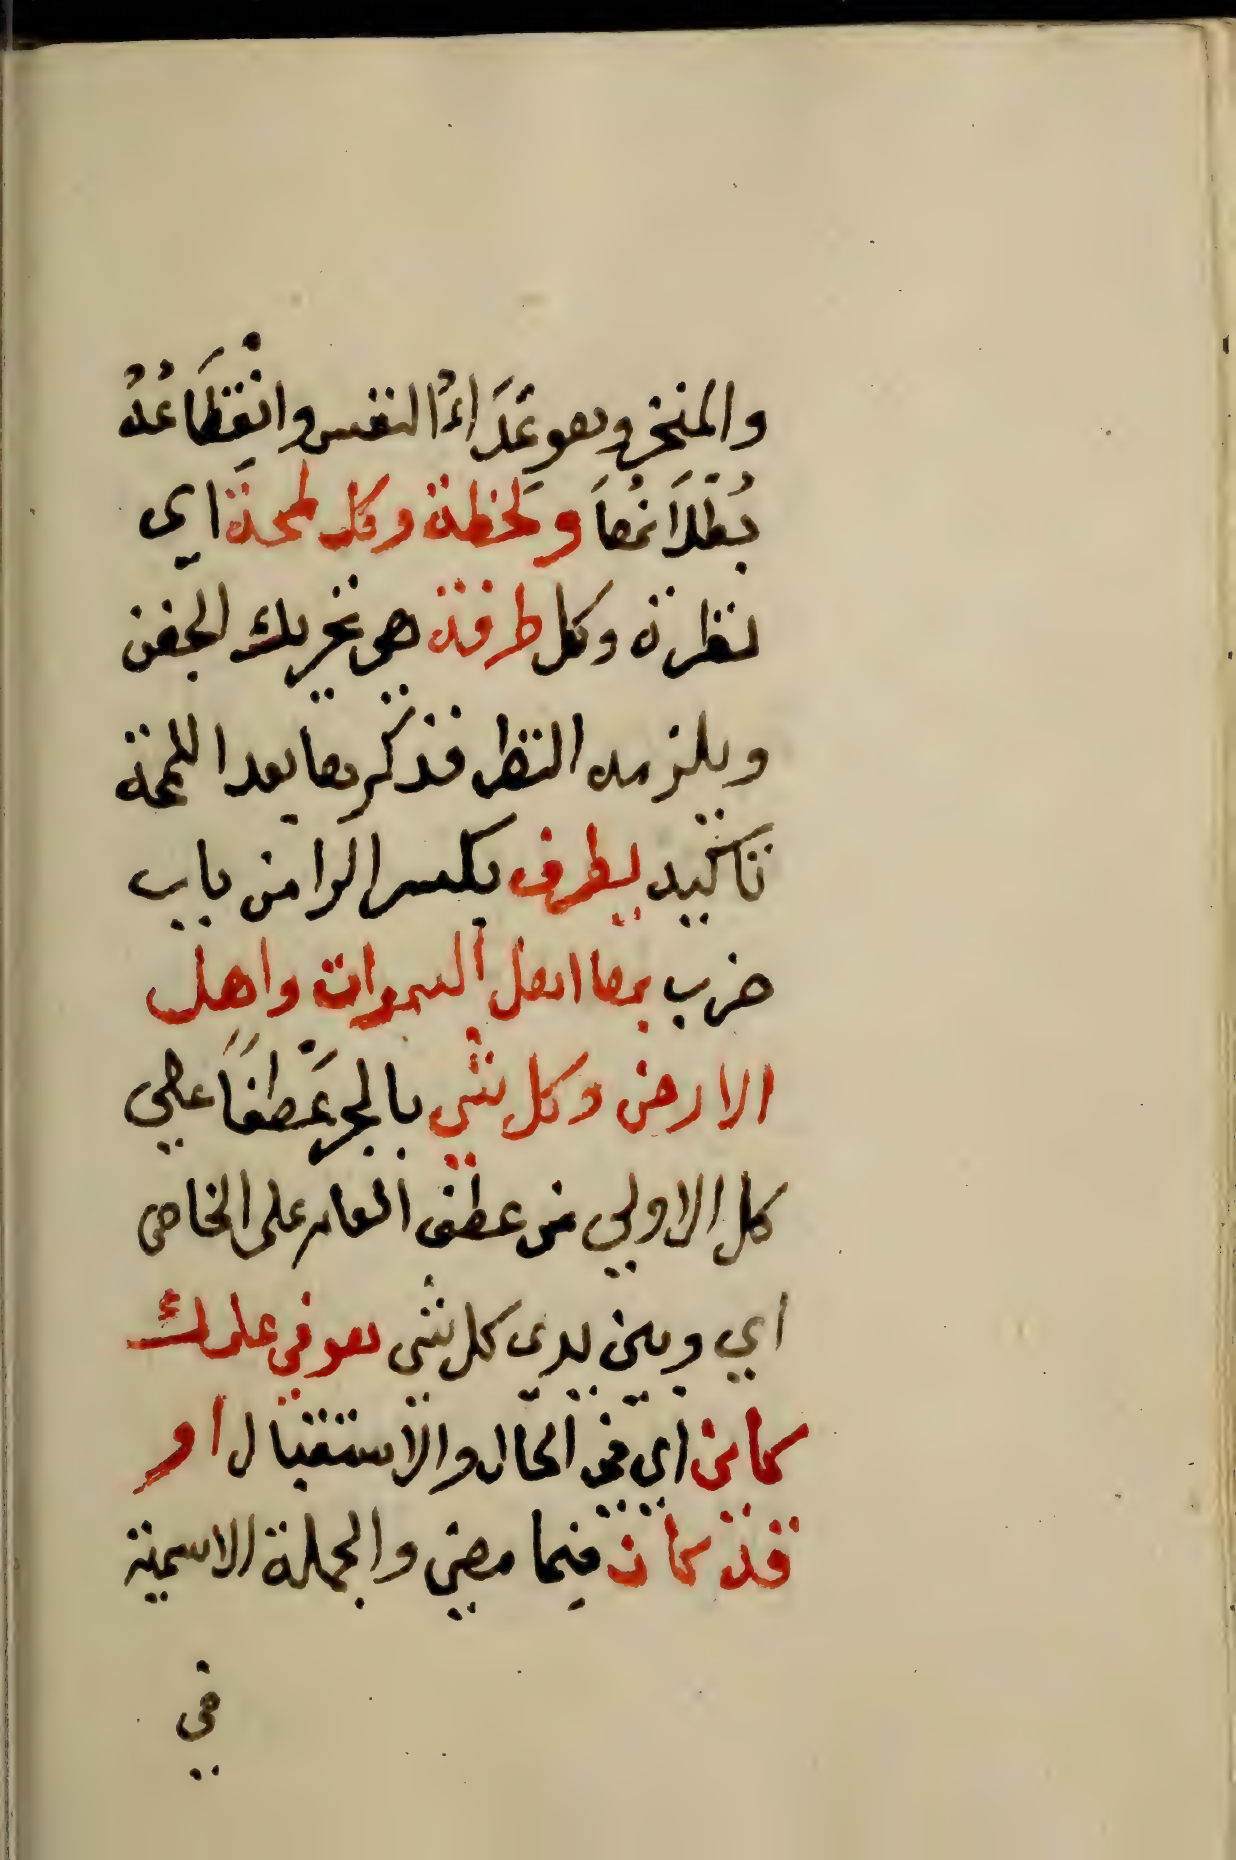 والمنخر وهو غَدَاءُ النفس وانْقِطَاعُهُ
بُطْلَانُهَا ولَحظة وكل لمحة اي
نظرة وكل طرفة هي تحريك الجفن
ويلزمه النظر فذكرها بعد اللمحة
تأكيد يطرف بكسر الرا من باب
ضرب بها اهل السموات واهل
الارض وكل شي بالجر عَطفًا علي
كل الاولي من عطف العام على الخاص
اي وبين يدي كل شي هو في علمك
كاين اي في الحال والاستقبال او
قد كان فيما مضي والجملة الاسمية
في